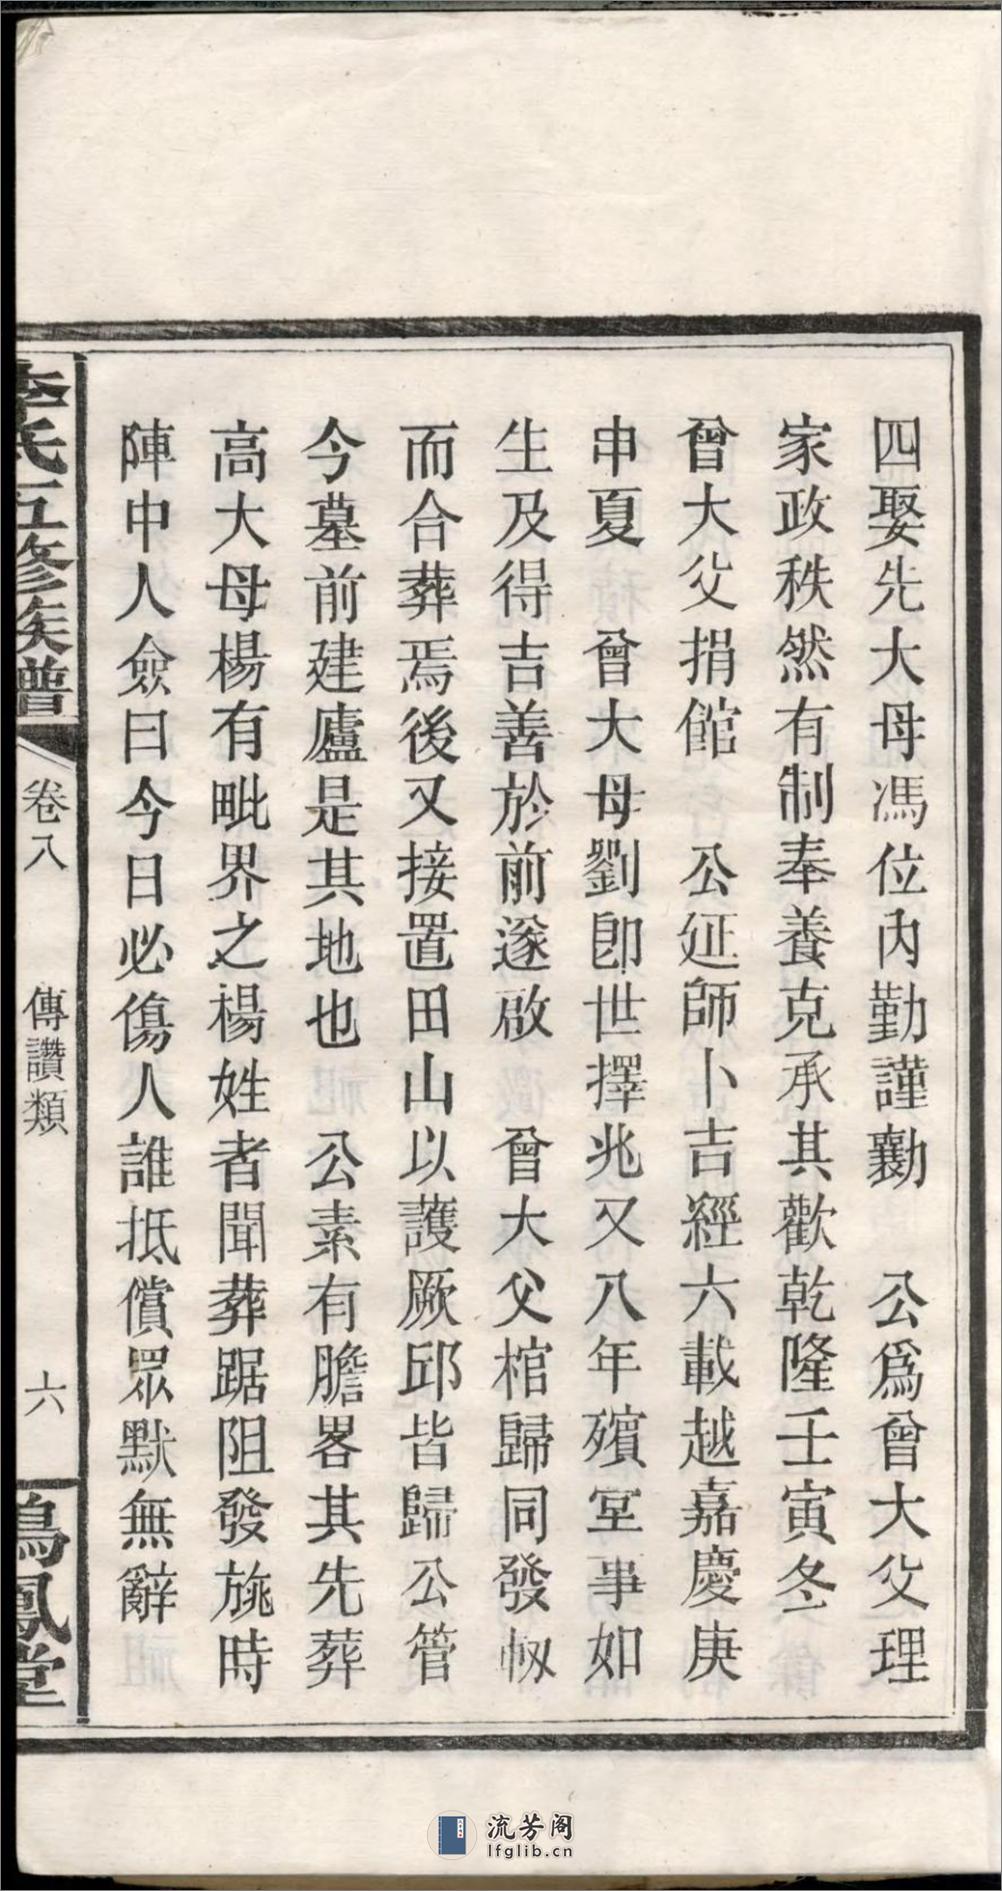 四娶先大母馮位內勤謹勷　公爲曾大父理
家政秩然有制奉養克承其歡乾隆壬寅冬
曾大父捐館　公延師卜吉經六載越嘉慶庚
申夏　曾大母劉卽世擇兆又八年殯室事如
生及得吉善於前遂啟　曾大父棺歸同發
而合葬焉後又接置田山以護厥邱皆歸公管
今墓前建廬是其地也　公素有膽畧其先葬
高大母楊有毗界之楊姓者聞葬踞阻發旐時
陣中人僉曰今日必傷人誰抵償眾默無辭
李氏五修族譜
卷八
傳讚類
六
鳴鳳堂
流芳阁
lfglib.cn